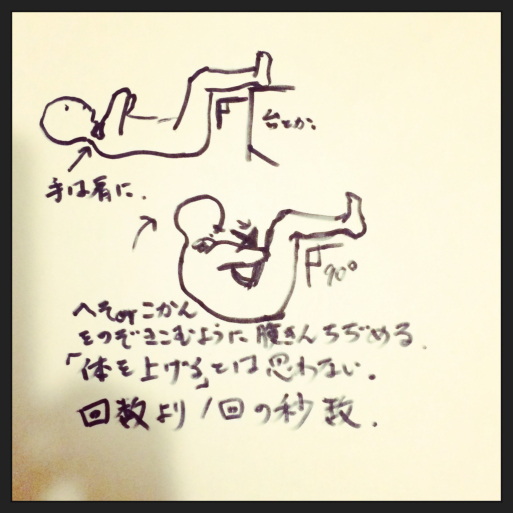 台とか。
手は肩に.
90°
へそorこかん
をのぞきこむように 腹きんちぢめる.
「体を上げる」とは思わない.
回数より1回の秒数.